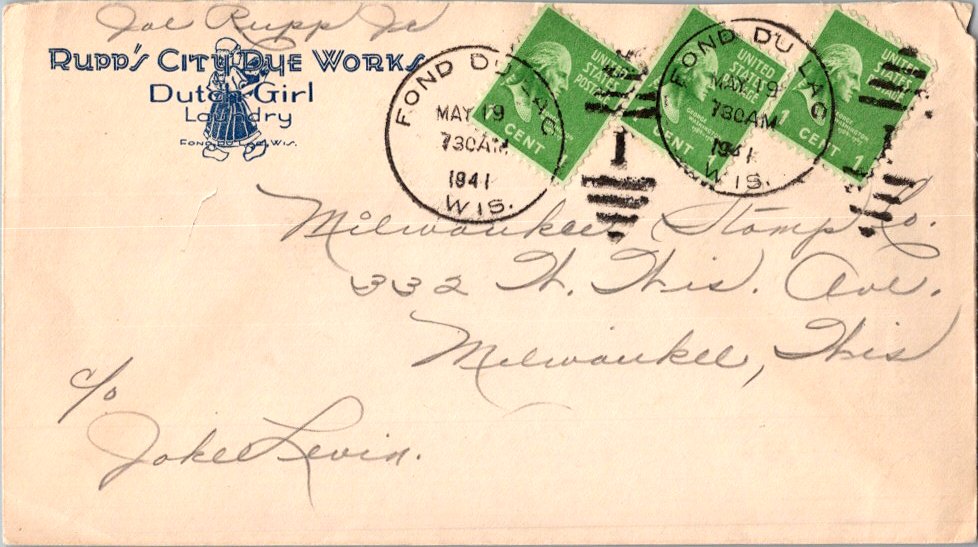 Joe Rupp Jr
Rupp's City Dye Works
Dutch Girl
Laundry
Fond du Lac, Wis.
FOND DU LAC
MAY 19
730AM
1941
WIS.
FOND DU LAC
MAY 19
730AM
1941
WIS.
UNITED
STATES
POSTAGE
1 CENT 1
UNITED
STATES
POSTAGE
GEORGE
WASHINGTON
1 CENT 1
UNITED
STATES
POSTAGE
GEORGE
WASHINGTON
1 CENT 1
Milwaukee Stamp Co.
332 W. Wis. Ave.
Milwaukee, Wis
c/o
Jake Levin.